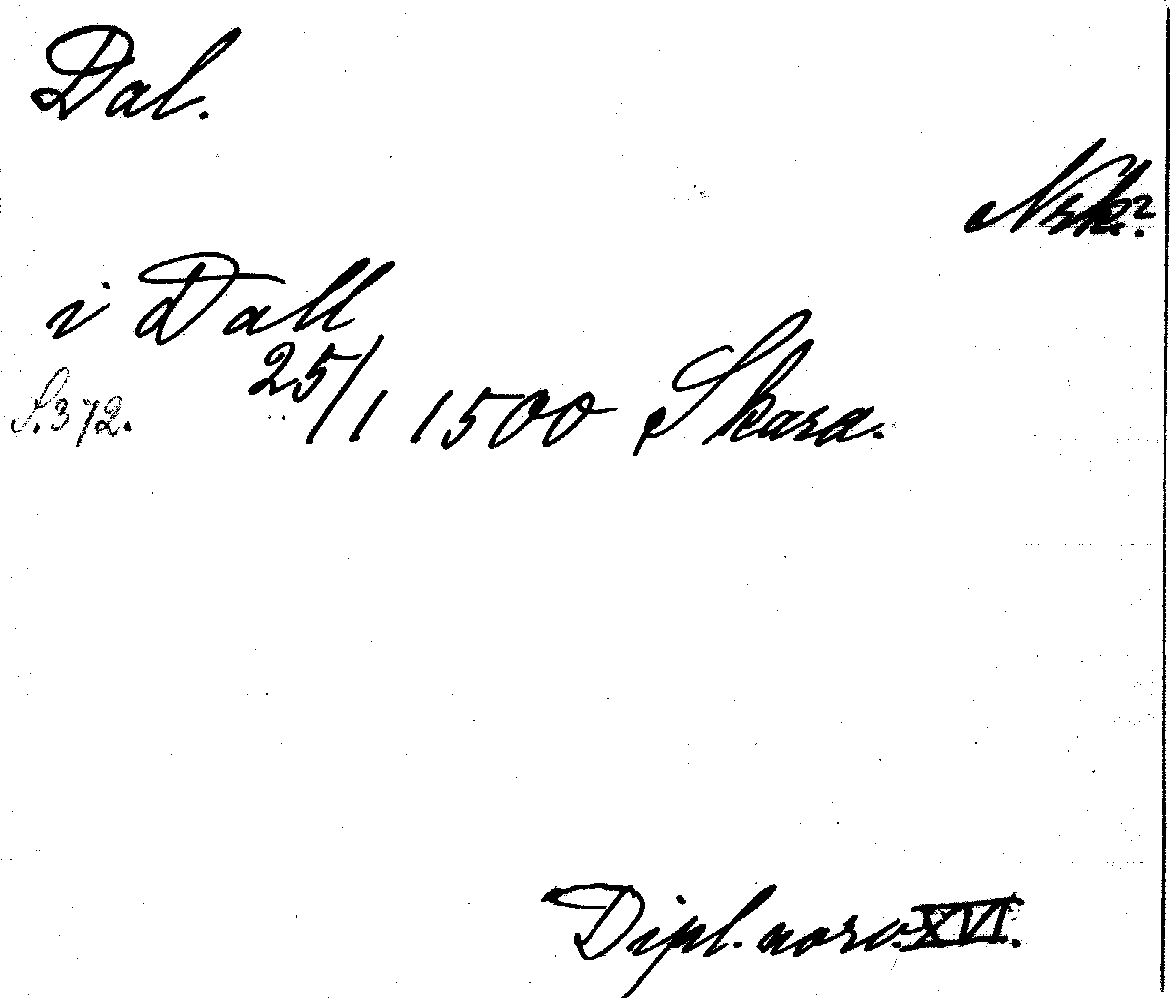 Dal.
i Dall
25/1 1500 Skara.
S. 372.
Dipl. norv. XVI.